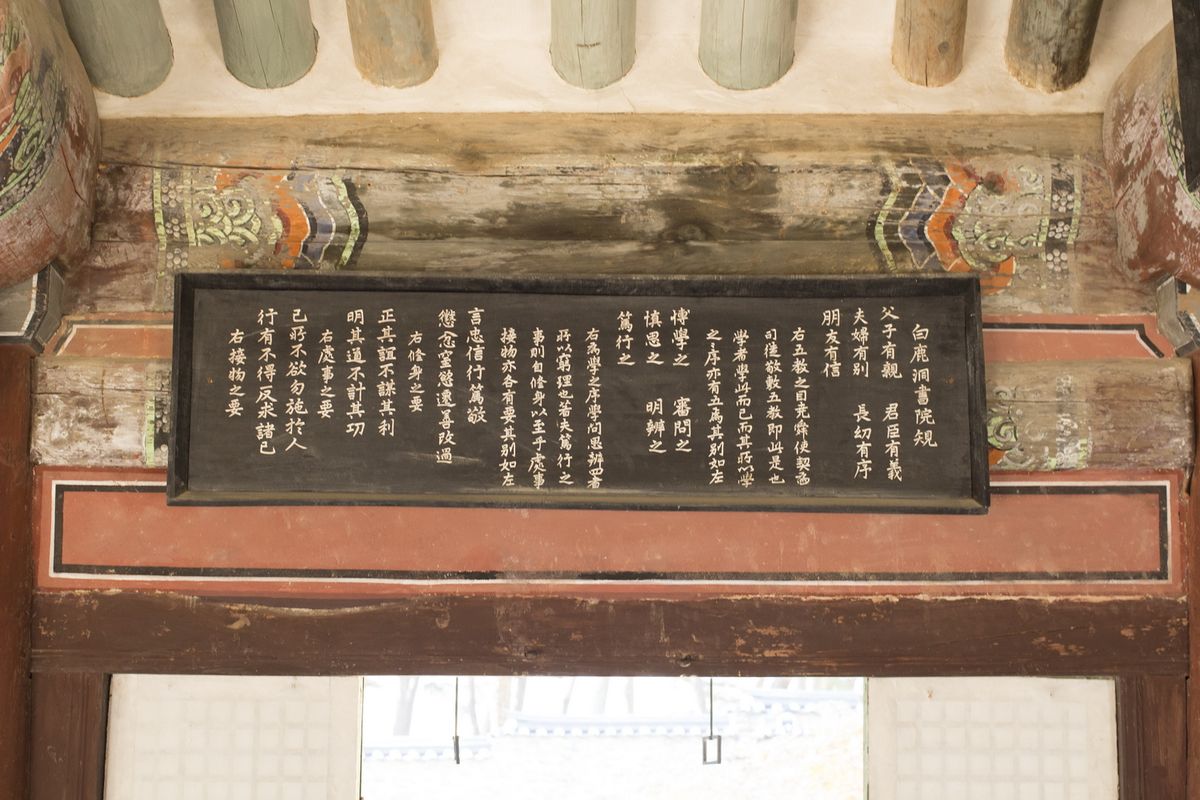 白鹿洞書院䂓
父子有親 君臣有義
夫婦有別 長幼有序
朋友有信
右五教之目堯舜使契爲
司徒敬敷五教即此是也
學者學此而已而其所以學
之序亦有五焉其別如左
博學之 審問之
慎思之 明辨之
篤行之
右為學之序學問思辨四者
所以窮理也若夫篤行之
事則自修身以至乎處事
接物亦各有要其別如左
言忠信行篤敬
懲忿窒慾遷善改過
右修身之要
正其誼不謀其利
明其道不計其功
右處事之要
己所不欲勿施於人
行有不得反求諸己
右接物之要